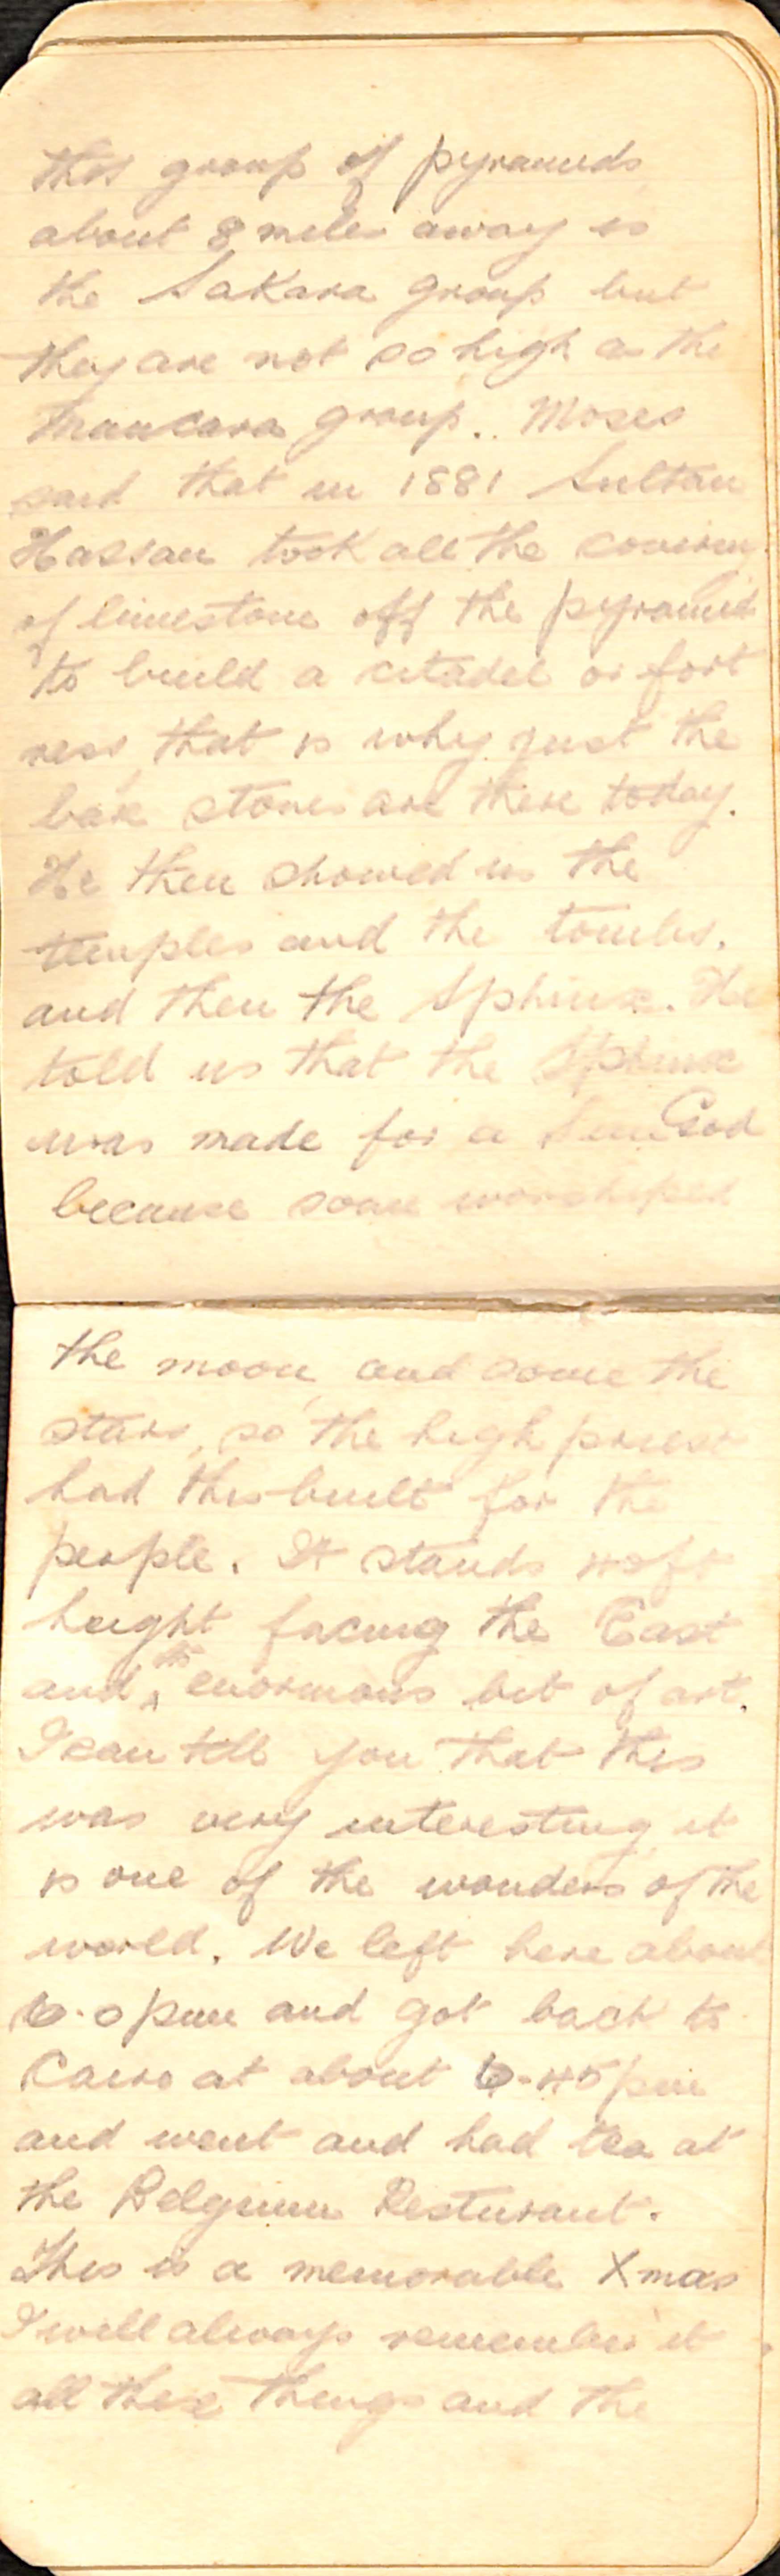 this group of pyramids
about 8 miles away is
the Sakara group but
they are not so high as the
group. Moses
said that in 1881 Sultan
Hassan took all the covering
of limestone off the pyramid
to build a citadel or fort
ress, that is why just the
bare stones are there today.
He then showed us the
temples and the tombs.
and then the Sphinx. He
told us that the Sphinx
was made for a Sun God
because some worshiped
the moon, and some the
stars, so the high priest
had this built for the
people. It stands
height facing the East
and, its enormous bit of art.
I can tell you that this
was very interesting it
is one of the wonders of the
world. We left here about
6.0 pm and got back to
Cairo at about 6-45 pm
and went and had tea at
the Belguim Resturant.
This is a memorable Xmas
I will always remember it
all these things and the